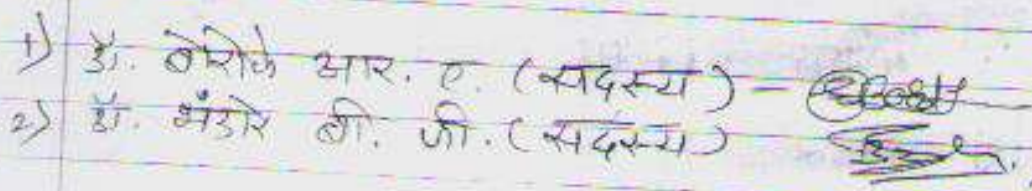 1) डॉ. बोरीके आर. ए. (सदस्य) –
2) डॉ. भंडारे बी. जी. (सदस्य)